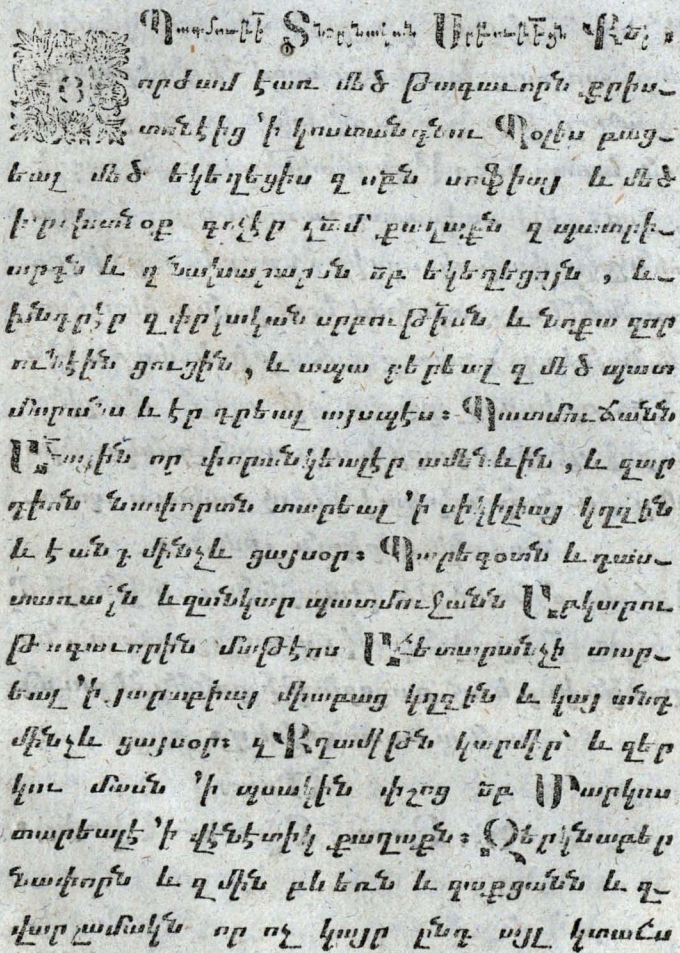 ՊատմուԹի Տնօրինական Սրբութեցն Քսի ։
Յորժամ էառ մեծ թագաւորն քրիս֊
տոնէից 'ի կոստանդնու Պօլիս բաց֊
եալ մեծ եկեղեցիս զ սբն սոֆիայ և մեծ
իշխանօք գոչէր զամ քաղաքն զ պատրի֊
արգն և զ նախարարսն սբ եկեղեցւոյն , և֊
խնդրէր զ փրկական սրբութիսն և նոքա զոր
ունէին ցուցին , և ապա բերեալ զ մեծ պատ
մարանս և էր գրեալ այսպէս ։ Պատմուճանն
Աստուածային որ փորանկեալէր ամենևին , և զար
դիսն նափորտն տարեալ 'ի սիկիլիայ կղզին
և է անդ մինչև ցայսօր ։ Պարեգօտն և դաս֊
տառակն և զսնկար պատմուջանն Աբկարու
թագաւորին մաթէոս Աւետարանչի տար֊
եալ 'ի յարաբիայ միաբաց կղզին և կայ անդ
մինչև ցայսօր ։ զ Քղամիթն կարմիր՝ և զեր
կու մասն 'ի պսակին փշոց սբ Մարկոս
տարեալէ 'ի վէնէտիկ քաղաքն ։ Զերկնաբեր
նափորն և զ մին բևեռն և զսքցանն և զ֊
վարշամակն որ ոչ կայր ընդ այլ կտաւս